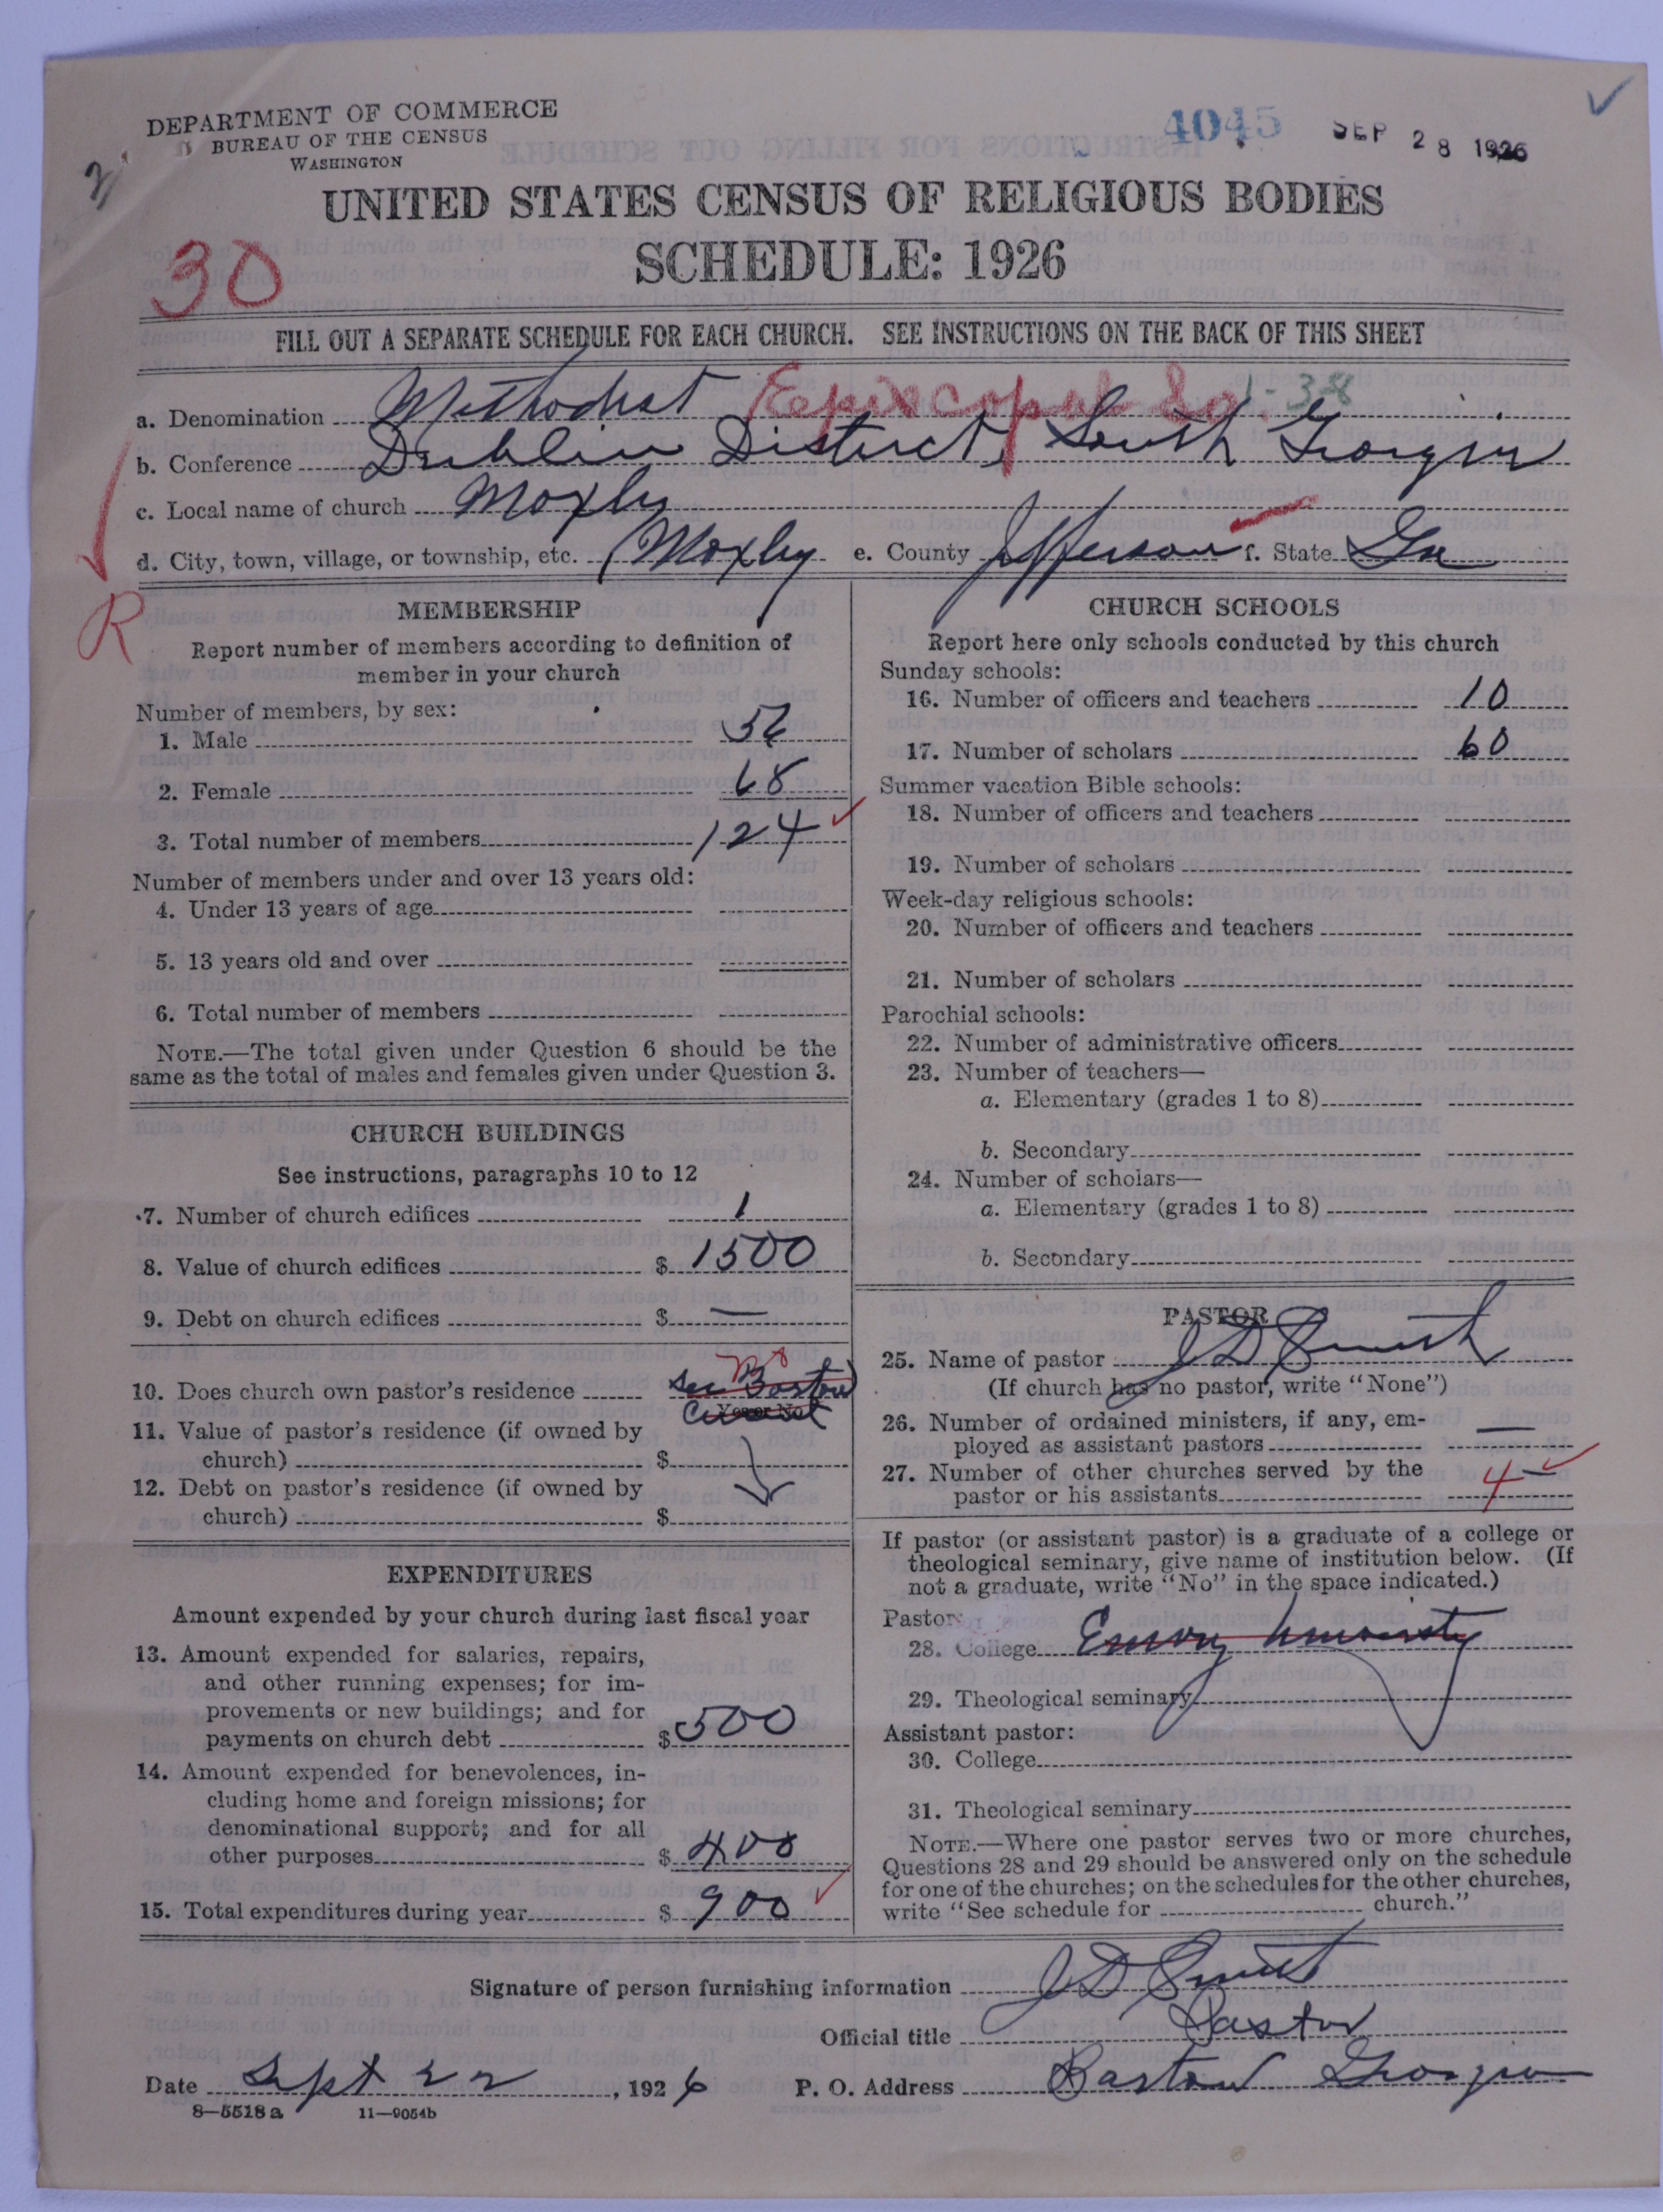 DEPARTMENT OF COMMERCE
BUREAU OF THE CENSUS
WASHINGTON
4045 SEP 28 1926
2
UNITED STATES CENSUS OF RELIGIOUS BODIES
SCHEDULE: 1926
30
FILL OUT A SEPARATE SCHEDULE FOR EACH CHURCH. SEE INSTRUCTIONS ON THE BACK OF THIS SHEET
a. Denomination Methodist Episcopal So. 1-38
b. Conference Dublin District, South Georgia
c. Local name of church Moxley
d. City, town, village, or township, etc. Moxley e. County Jefferson f. State Ga
R
MEMBERSHIP
Report number of members according to definition of
member in your church
Number of members, by sex:
1. Male 56
2. Female 68
3. Total number of members 124
Number of members under and over 13 years old:
4. Under 13 years of age
5. 13 years old and over
6. Total number of members
NOTE.—The total given under Question 6 should be the
same as the total of males and females given under Question 3.
CHURCH BUILDINGS
See instructions, paragraphs 10 to 12
7. Number of church edifices 1
8. Value of church edifices $ 1500
9. Debt on church edifices $ —
10. Does church own pastor's residence No See Bartow
Yes or No
11. Value of pastor's residence (if owned by
church) $
12. Debt on pastor's residence (if owned by
church) $
EXPENDITURES
Amount expended by your church during last fiscal year
13. Amount expended for salaries, repairs,
and other running expenses; for im-
provements or new buildings; and for
payments on church debt $ 500
14. Amount expended for benevolences, in-
cluding home and foreign missions; for
denominational support; and for all
other purposes $ 400
15. Total expenditures during year $ 900
CHURCH SCHOOLS
Report here only schools conducted by this church
Sunday schools:
16. Number of officers and teachers 10
17. Number of scholars 60
Summer vacation Bible schools:
18. Number of officers and teachers
19. Number of scholars
Week-day religious schools:
20. Number of officers and teachers
21. Number of scholars
Parochial schools:
22. Number of administrative officers
23. Number of teachers—
a. Elementary (grades 1 to 8)
b. Secondary
24. Number of scholars—
a. Elementary (grades 1 to 8)
b. Secondary
PASTOR
25. Name of pastor J D Smith
(If church has no pastor, write "None")
26. Number of ordained ministers, if any, em-
ployed as assistant pastors —
27. Number of other churches served by the
pastor or his assistants 4
If pastor (or assistant pastor) is a graduate of a college or
theological seminary, give name of institution below. (If
not a graduate, write "No" in the space indicated.)
Pastor:
28. College Emory University
29. Theological seminary
Assistant pastor:
30. College
31. Theological seminary
NOTE.—Where one pastor serves two or more churches,
Questions 28 and 29 should be answered only on the schedule
for one of the churches; on the schedules for the other churches,
write "See schedule for church."
Signature of person furnishing information J D Smith
Official title Pastor
Date Sept 22, 1926 P. O. Address Bartow Georgia
8—5518a 11—9054b